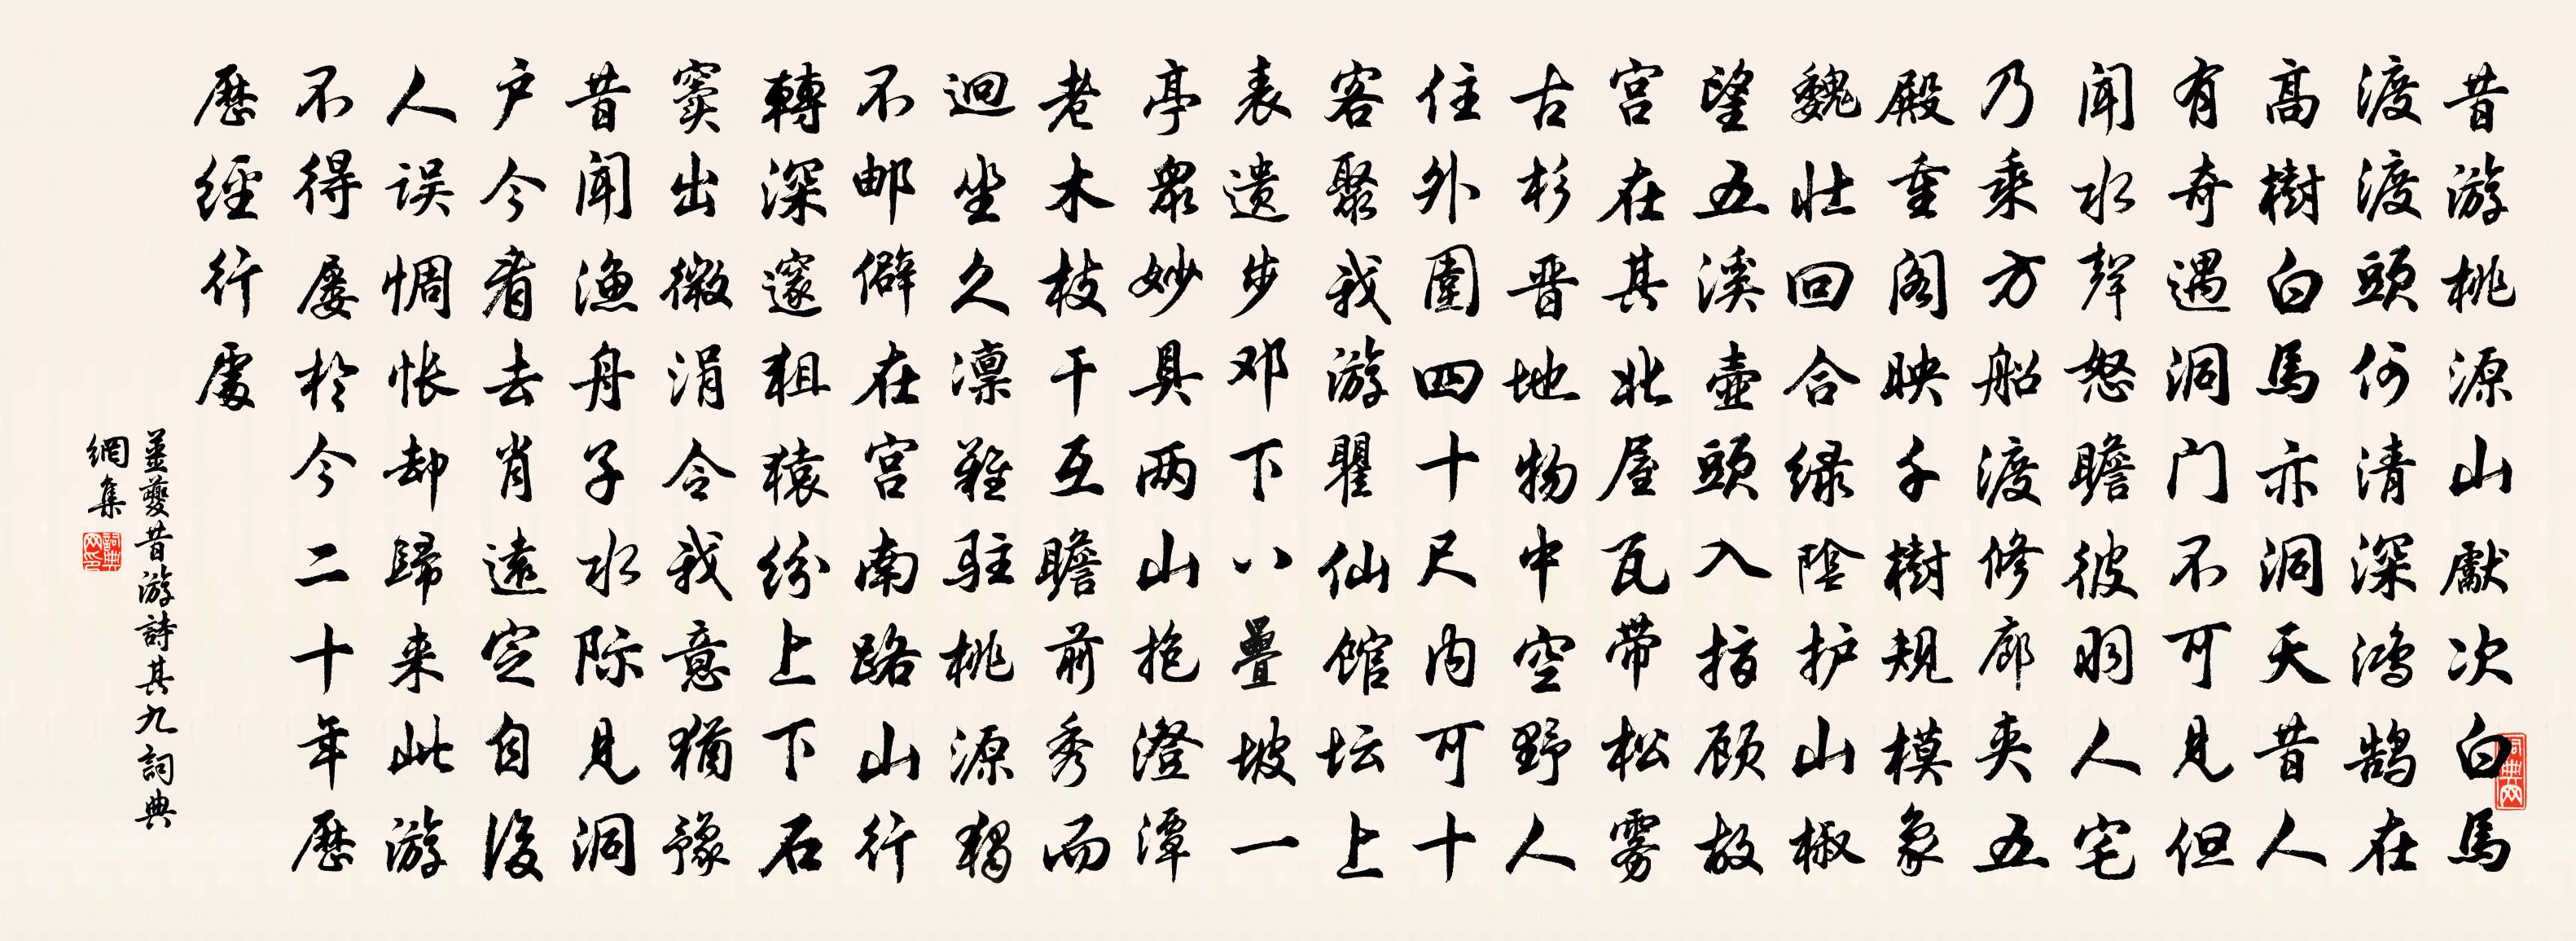 昔游桃源山獻次白馬
渡渡頭何清深鴻鹄在
高樹白馬亦洞天昔人
有奇遇洞门不可見但
闻水聲怒瞻彼羽人宅
乃乘方船渡修廊夹五
殿重阁映千樹規模象
魏壮回合绿陰护山椒
望五溪壶頭入指顾故
宫在其北屋瓦带松雾
古杉晋地物中空野人
住外圍四十尺内可十
客聚我游瞿仙馆坛上
表遗步邓下八疊坡一
亭衆妙具两山抱澄潭
老木枝干互瞻前秀而
迴坐久凛難駐桃源獨
不邮僻在宫南路山行
轉深邃狙猿纷上下石
窦出微涓令我意猶豫
昔闻漁舟子水际見洞
户今看去肖遠定自後
人误惆怅却歸来此游
不得屡於今二十年歷
歷經行處
姜夔昔游詩其九詞典
網集
詞典网印
詞典网